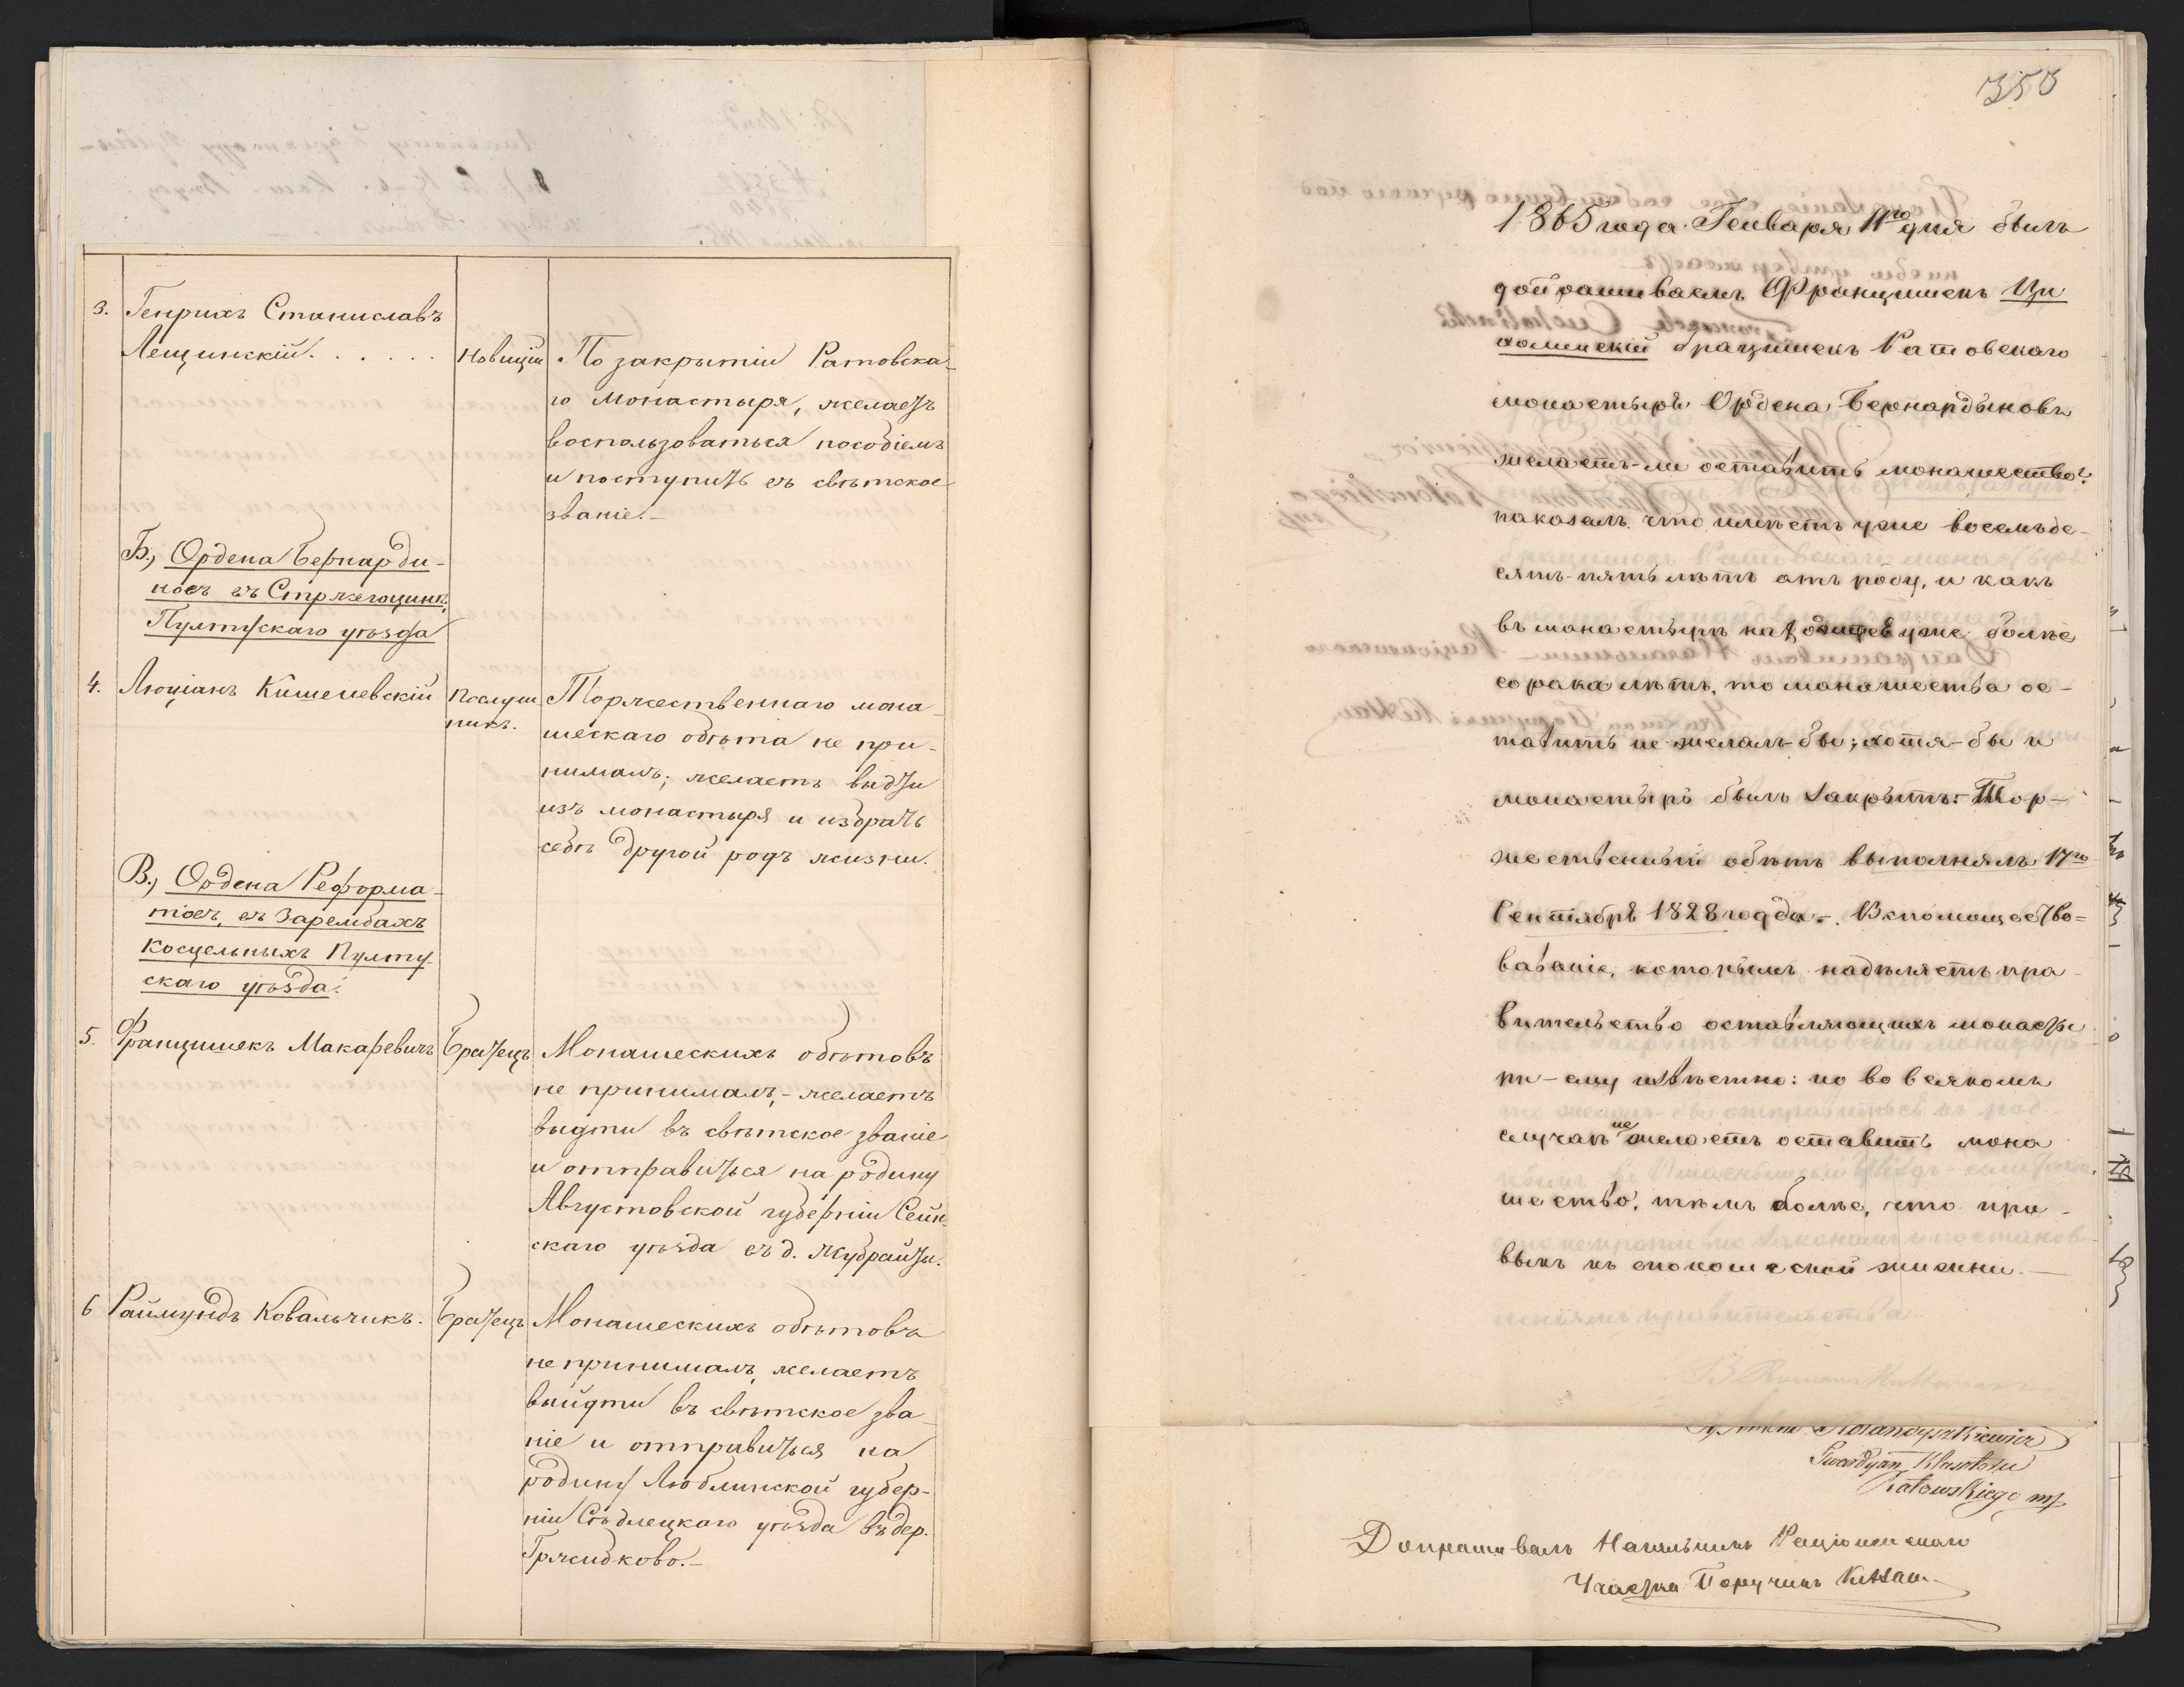 3. Генрихъ Станиславъ
Лещинскій. . . . . . Новицій По закрытіи Ратовска-
го монастыря, желаетъ
воспользоваться пособіемъ
и поступить въ свѣтское
званіе.-
Б., Ордена Бернарди-
новъ въ Стржегоцинѣ,
Пултускаго уѣзда
4. Люціанъ Кишелевскій Послуш Торжественнаго мона-
никъ. шескаго обѣта не при-
нималъ; желаетъ выдти
изъ монастыря и избрать
себѣ другой родъ жизни.
В., Ордена Реформа-
товъ, въ Зарембахъ
косцельныхъ Пулту-
скаго уѣзда.
5. Францишекъ Макаревичъ Братецъ Монашескихъ обѣтовъ
не принималъ, - желаетъ
выдти въ свѣтское званіе
и отправиться на родину
Августовской губерніи Сейн-
скаго уѣзда въ д. Жубрайти.
6 Раймундъ Ковальчикъ. Братецъ Монашескихъ обѣтовъ
не принималъ, желаетъ
выйдти въ свѣтское зва-
ніе и отправиться на
родину Люблинской губер-
ніи Сѣдлецкаго уѣзда въ дер.
Гржидково.-
353
1865 года Генваря 11го дня былъ
допрашиваемъ Францишекъ Ци
холинскій брацишекъ Ратовскаго
монастыря Ордена Бернардыновъ
желаетъ-ли оставить монашество?
показалъ что имѣетъ уже восемьде-
сятъ-пять лѣтъ отъ роду, и какъ
въ монастырѣ находится уже болѣе
сорока лѣтъ, то монашества ос-
тавить не желалъ-бы; хотя-бы и
монастырь былъ закрытъ. Тор-
жественный обѣтъ выполнялъ 17го
Сентября 1828 года. Вспомощество=
ваваніе, которымъ надѣляетъ пра-
вительство оставляющихъ монасты
ри - ему извѣстно: но во всякомъ
случаѣ не желаетъ оставить мона
шество, тѣмъ болѣе, что при-
выкъ къ спокойской жизни. —
Gwardyan Klasztoru
Ratowskiego mp
Допрашивалъ Начальникъ Раціонжскаго
Участка Поручикъ